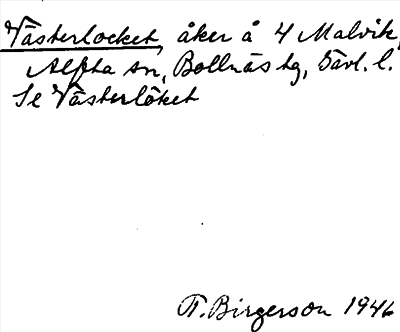 Västerlocket, åker å 4 Malvik,
Alfta sn, Bollnäs tg, Gävl. l.
Se Västerlöket
T. Birgerson 1946